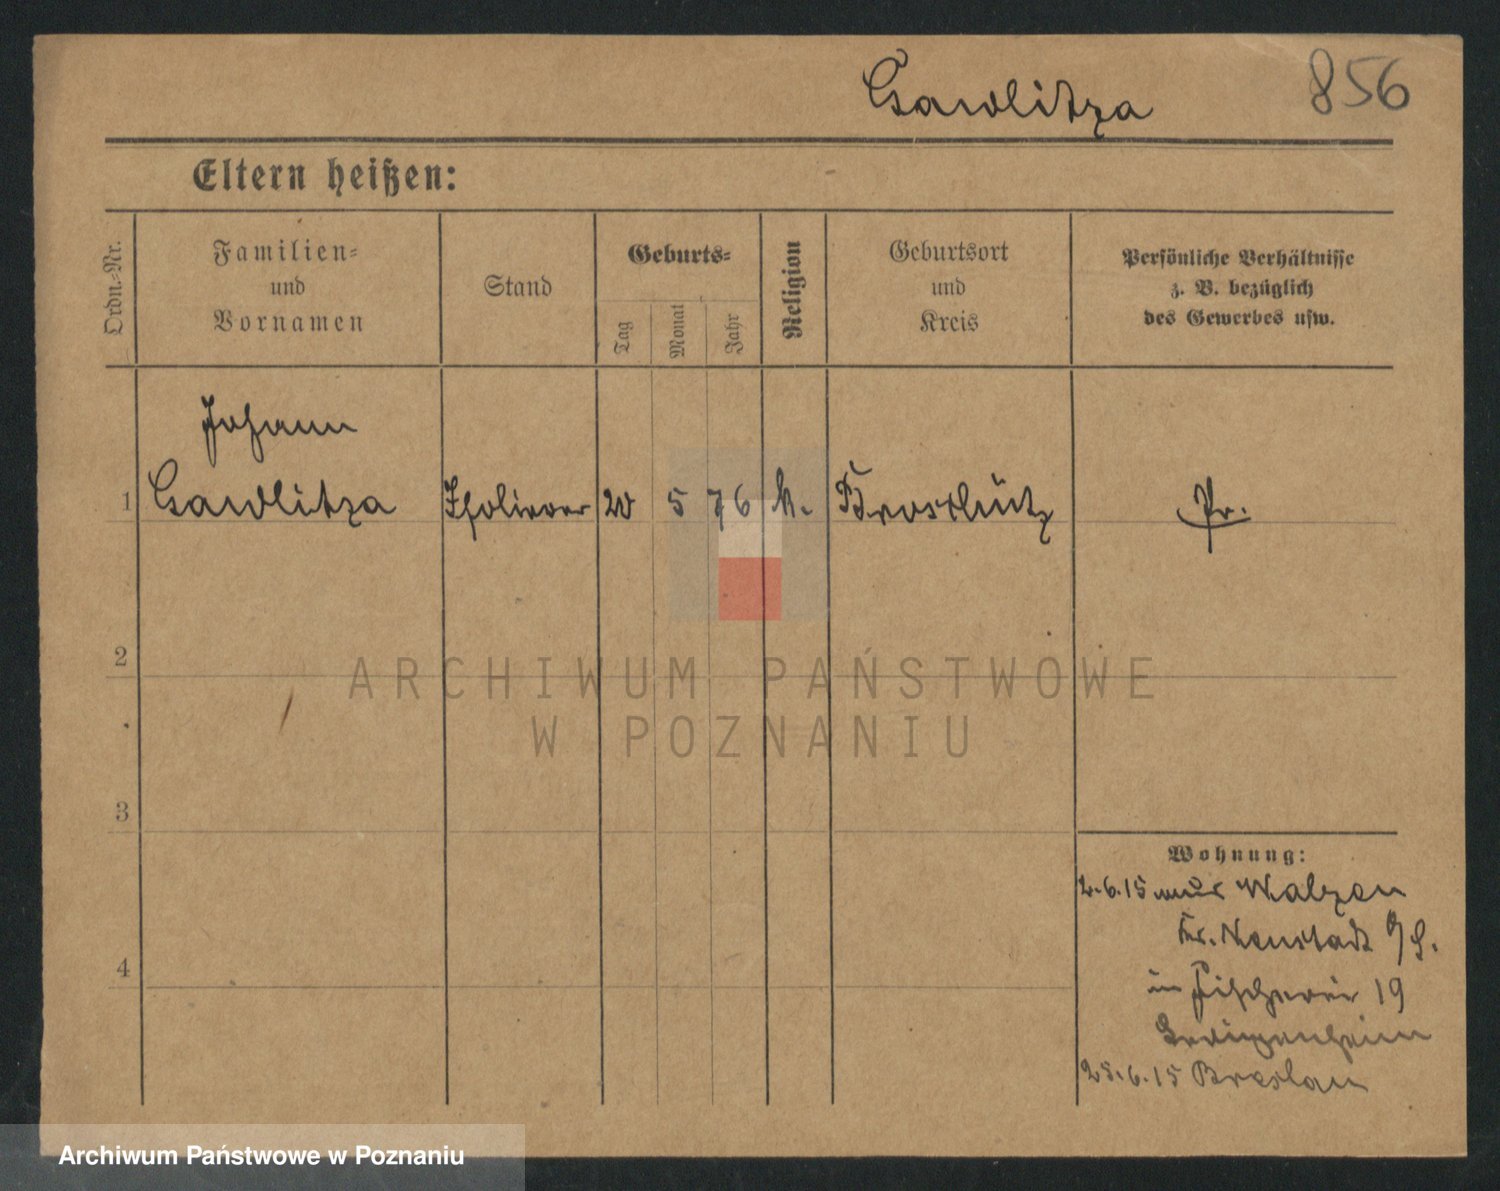 Gawlitza 856
Eltern heißen:
Ordn.-Nr.
Familien-
und
Vornamen
Stand
Geburts-
Tag
Monat
Jahr
Religion
Geburtsort
und
Kreis
Persönliche Verhältnisse
z. B. bezüglich
des Gewerbes usw.
Johann
1 Gawlitza 5 76 k. Pr.
2
ARCHIWUM PAŃSTWOWE
W POZNANIU
3
Wohnung:
2.6.15 aus Walzen
Kr. Neustadt O/S.
4
in Fischerei 19
25.6.15 Breslau
Archiwum Państwowe w Poznaniu